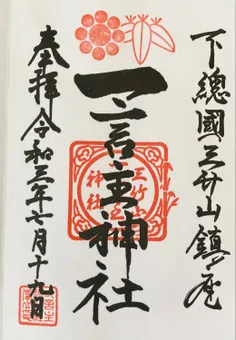 下總國三竹山鎮座
一言主神社
奉拝令和三年七月十九日